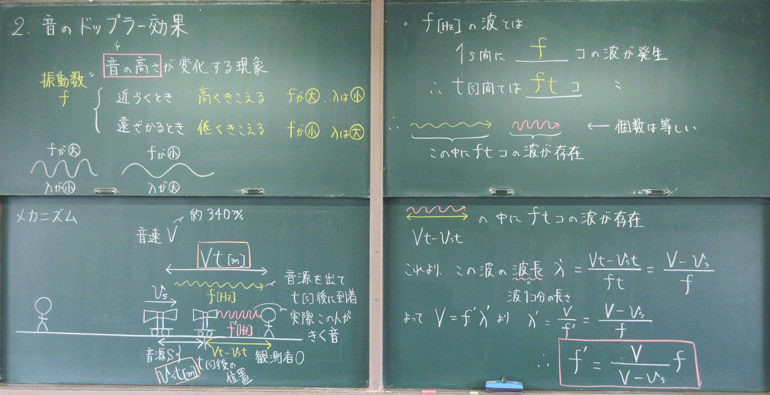 2. 音のドップラー効果
音の高さが変化する現象
振動数
f
近づくとき 高くきこえる fが大、λは小
遠ざかるとき 低くきこえる fが小 λは大
fが大 fが小
λが小 λが大
メカニズム
約340m/s
音速V
Vt[m]
f[Hz]
音源を出て
t[s]後に到着
vs
f'[Hz]
実際この人が
きく音
音源S
Vt-vst
観測者O
vst[m]
t[s]後の
位置
。f[Hz]の波とは
1s間に f コの波が発生
∴ t[s]間では ft コ 〃
∴
← 個数は等しい
この中にftコの波が存在
の中にftコの波が存在
Vt-vst
これより、この波の波長 λ' = (Vt-vst)/ft = (V-vs)/f
波1コ分の長さ
よって V=f'λ' より λ' = V/f' = (V-vs)/f
∴ f' = V/(V-vs) f